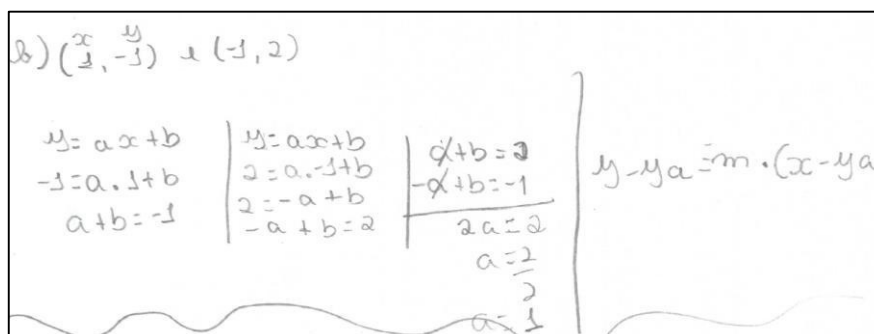 b) (1, -1) e (-1, 2)
x y
y = ax + b
-1 = a . 1 + b
a + b = -1
y = ax + b
2 = a . -1 + b
2 = -a + b
-a + b = 2
a + b = 2
-a + b = -1
2a = 2
a = 2
2
a = 1
y - ya = m . (x - ya